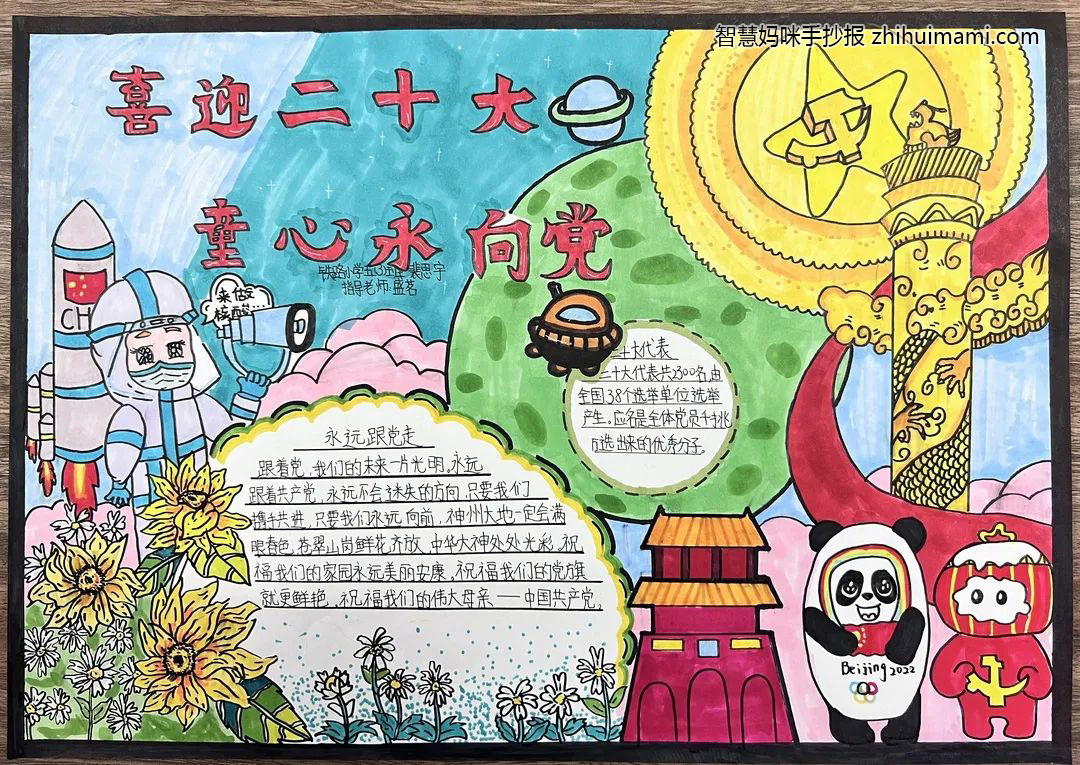 智慧妈咪手抄报 zhihuimami.com
喜迎二十大
童心永向党
铁路小学五(3)班 裴思宁
指导老师:盛茗
来做
核酸...
CH
二十大代表
二十大代表共2300名,由
全国38个选举单位选举
产生。应名是全体党员千挑
万选出来的优秀分子。
永远跟党走
跟着党,我们的未来一片光明,永远
跟着共产党,永远不会迷失的方向,只要我们
携手共进,只要我们永远向前,神州大地一定会满
眼春色,苍翠山岗鲜花齐放,中华大神处处光彩,祝
福我们的家园永远美丽安康,祝福我们的党旗
就更鲜艳,祝福我们的伟大母亲——中国共产党。
Beijing 2022